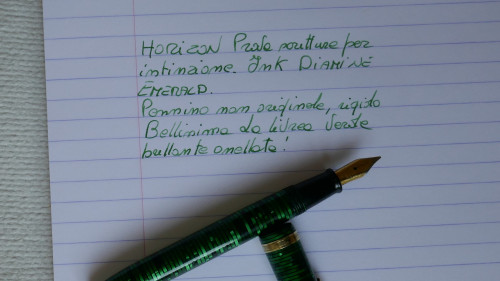 HORIZON Prova scrittura per
intinzione. Ink DIAMINE
EMERALD.
Pennino non originale, rigido
Bellissima la livrea verde
brillante anellata!